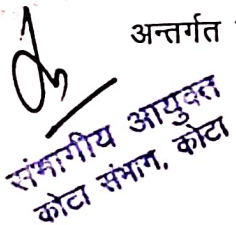 अन्तर्गत
संभागीय आयुक्त
कोटा संभाग, कोटा